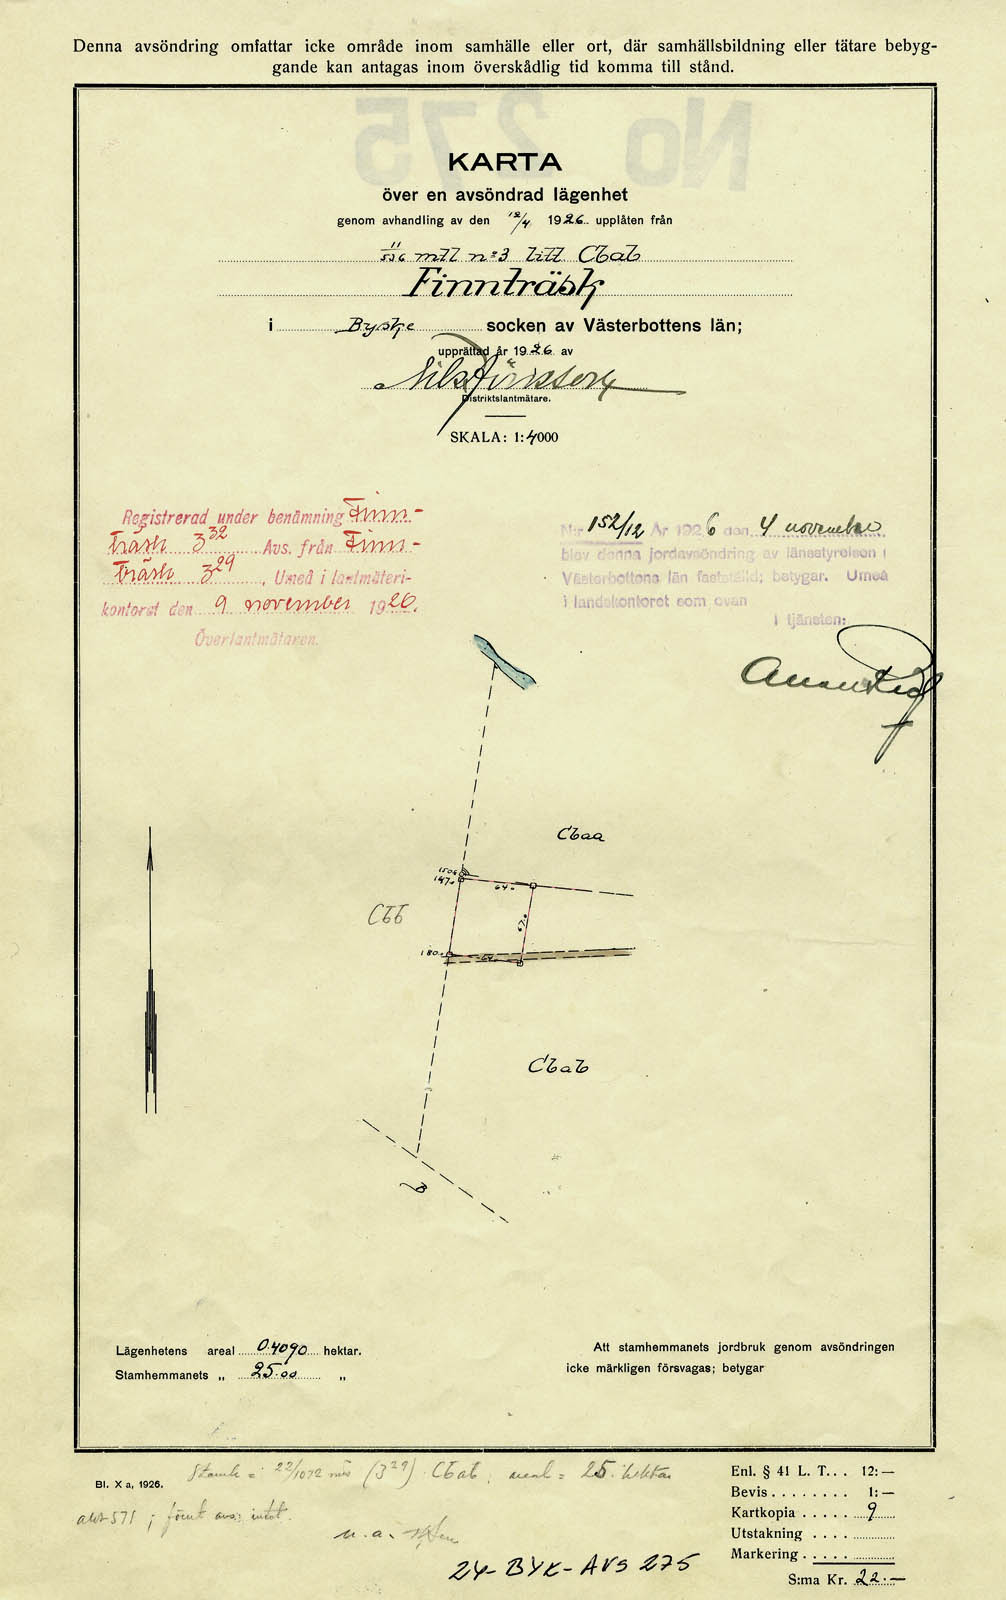 Denna avsöndring omfattar icke område inom samhälle eller ort, där samhällsbildning eller tätare bebyg-
gande kan antagas inom överskådlig tid komma till stånd.
No 275
KARTA
över en avsöndrad lägenhet
genom avhandling av den 12/4 1926 upplåten från
11/536 mtl no 3 litt. Cbab
Finnträsk
i Byske socken av Västerbottens län;
upprättad år 1926 av
Nils
Distriktslantmätare.
SKALA: 1:4000
Registrerad under benämning Finn-
träsk 3 32 Avs. från Finn-
träsk 3 29, Umeå i lantmäteri-
kontoret den 9 november 1926.
Överlantmätaren.
Nr 152/12 År 1926 den 4 november
blev denna jordavsöndring av länsstyrelsen i
Västerbottens län fastställd; betygar. Umeå
i landskontoret som ovan
I tjänsten:
Cbaa
1506
147.0
64.0
Cbb
67.0
180.0
64.0
Cbab
B
Lägenhetens areal 0.4090 hektar.
Stamhemmanets „ 25.00 „
Att stamhemmanets jordbruk genom avsöndringen
icke märkligen försvagas; betygar
Bl. X a, 1926.
Stamh = 22/1072 (3 29) Cbab; areal = 25 hektar
akt 571; förut avs: intet.
u. a.
24-BYK-AVS 275
Enl. § 41 L. T... 12:—
Bevis........ 1:—
Kartkopia ..... 9
Utstakning ....
Markering .....
S:ma Kr. 22.—